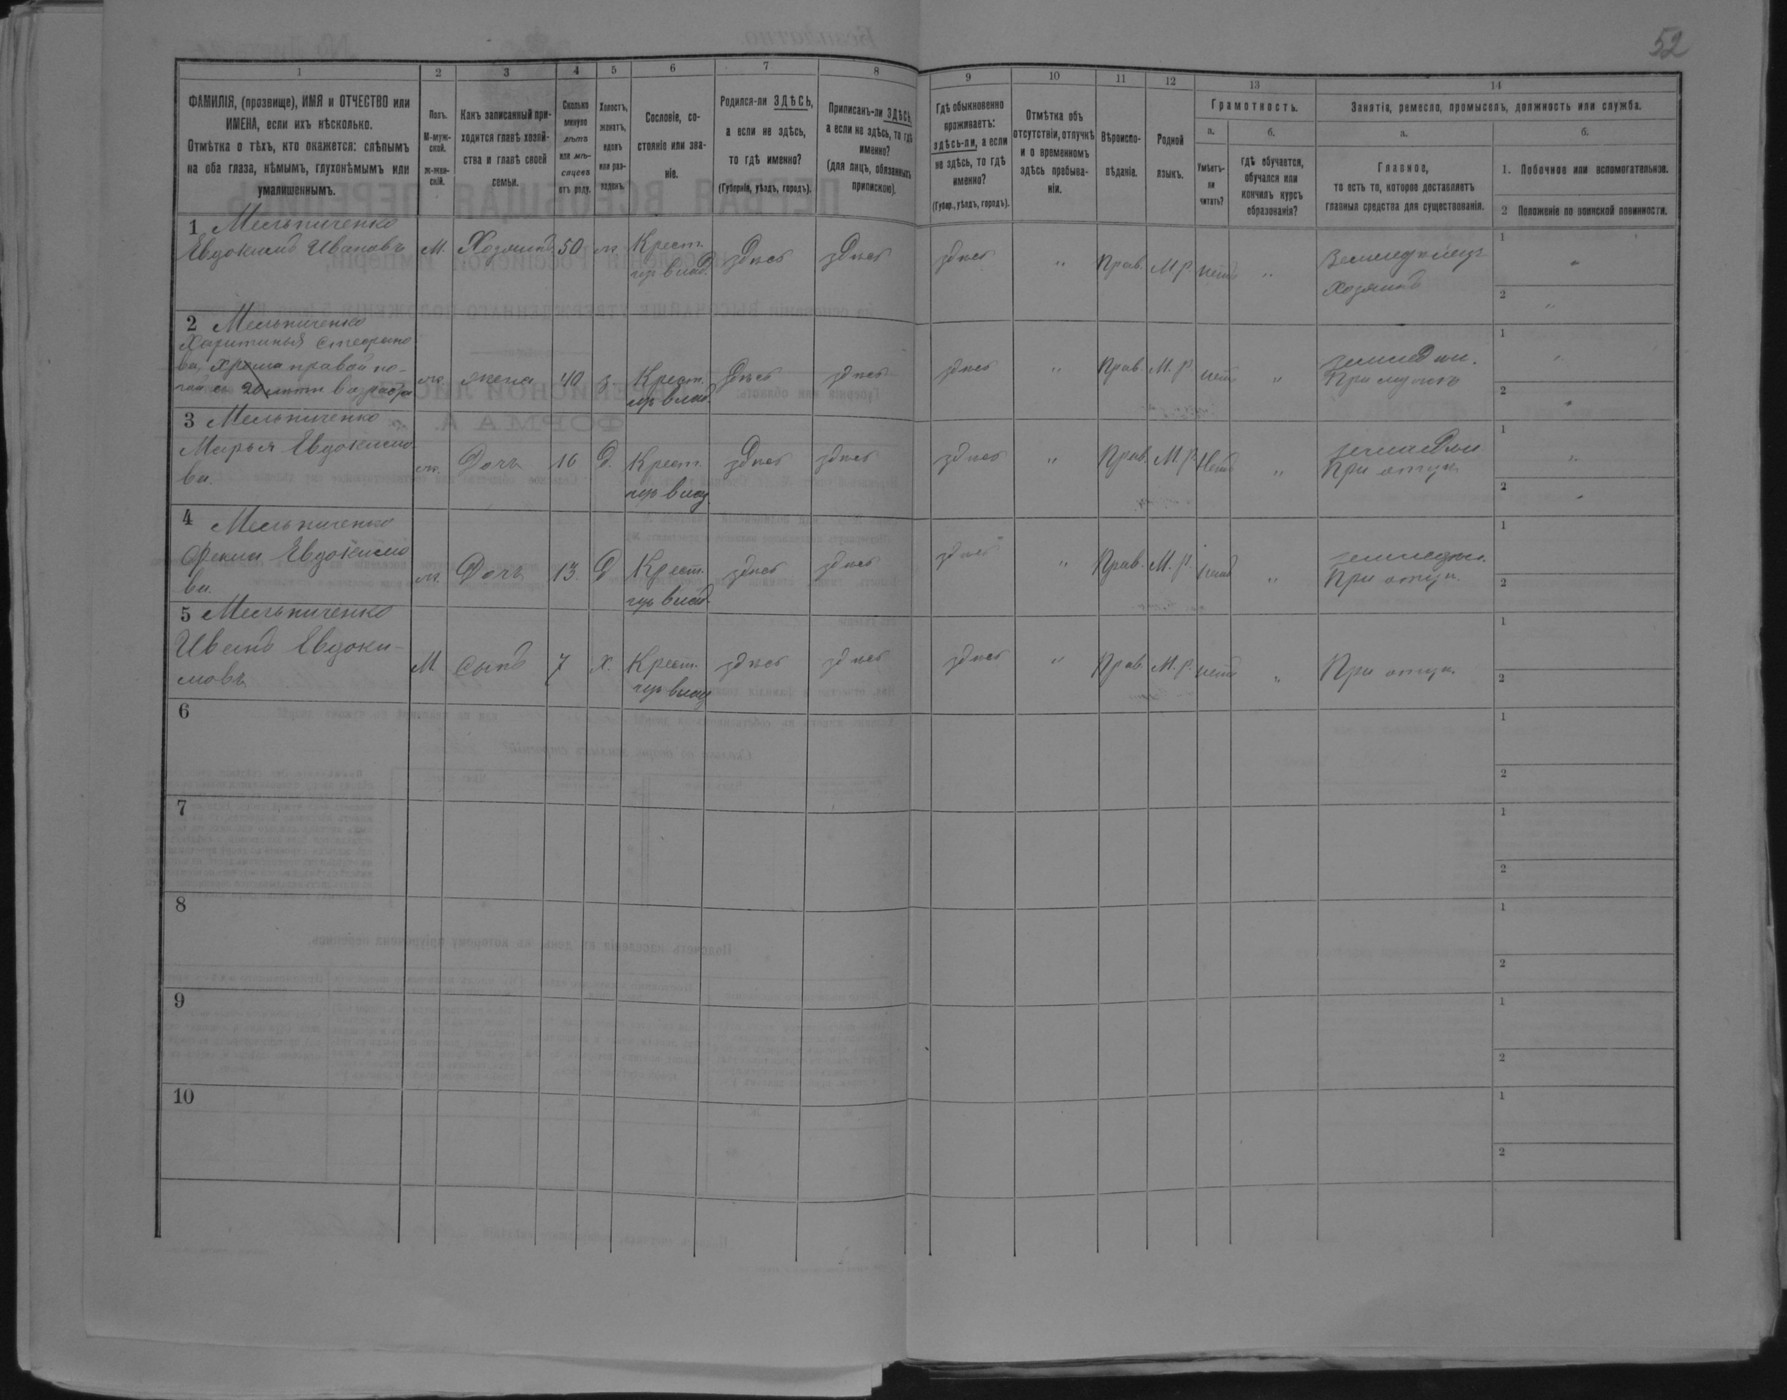 52
1
2
3
4
5
6
7
8
9
10
11
12
13
14
ФАМИЛІЯ, (прозвище), ИМЯ и ОТЧЕСТВО или
ИМЕНА, если ихъ нѣсколько.
Отмѣтка о тѣхъ, кто окажется: слѣпымъ
на оба глаза, нѣмымъ, глухонѣмымъ или
умалишеннымъ.
Полъ.
М-муж-
ской.
Ж-жен-
скій.
Какъ записанный при-
ходится главѣ хозяй-
ства и главѣ своей
семьи.
Сколько
минуло
лѣтъ
или мѣ-
сяцевъ
отъ роду.
Холостъ,
женатъ,
вдовъ
или раз-
веденъ.
Сословіе, со-
стояніе или зва-
ніе.
Родился-ли ЗДѢСЬ,
а если не здѣсь,
то гдѣ именно?
(Губернія, уѣздъ, городъ).
Приписанъ-ли ЗДѢСЬ,
а если не здѣсь, то гдѣ
именно?
(для лицъ, обязанныхъ
припискою).
Гдѣ обыкновенно
проживаетъ:
здѣсь-ли, а если
не здѣсь, то гдѣ
именно?
(Губер., уѣздъ, городъ).
Отмѣтка объ
отсутствіи, отлучкѣ
и о временномъ
здѣсь пребыва-
ніи.
Вѣроиспо-
вѣданіе.
Родной
языкъ.
Грамотность.
а.
б.
Умѣетъ-
ли
читать?
гдѣ обучается,
обучался или
кончилъ курсъ
образованія?
Занятіе, ремесло, промыселъ, должность или служба.
а.
б.
Главное,
то есть то, которое доставляетъ
главныя средства для существованія.
1. Побочное или вспомогательное.
2 Положеніе по воинской повинности.
1 Мельниченко
Евдокимъ Ивановъ М Хозяинъ 50 ж Крест. здѣсь здѣсь здѣсь " Прав. М.р. нетъ " Земледѣлецъ
хозяинъ
1 "
2 "
2 Мельниченко
Харитинья
ва, хрома правой но-
гой съ 20 лѣтъ
ж. жена 40 з. Крест. здѣсь здѣсь здѣсь " Прав. М.р. нетъ "
При мужѣ
1 "
2 "
3 Мельниченко
Марья Евдокимо
ва.
ж. Дочь 16 д. Крест. здѣсь здѣсь здѣсь " Прав. М.р. Нетъ "
При отцѣ.
1 "
2 "
4 Мельниченко
Фекла Евдокимо
ва.
ж. Дочь 13. д Крест. здѣсь здѣсь здѣсь " Прав. М.р. нетъ "
При отцѣ.
1
2
5 Мельниченко
Иванъ Евдоки-
мовъ
М сынъ 7 х. Крест. здѣсь здѣсь здѣсь " Прав. М.р. нетъ " При отцѣ.
1
2
6
1
2
7
1
2
8
1
2
9
1
2
10
1
2